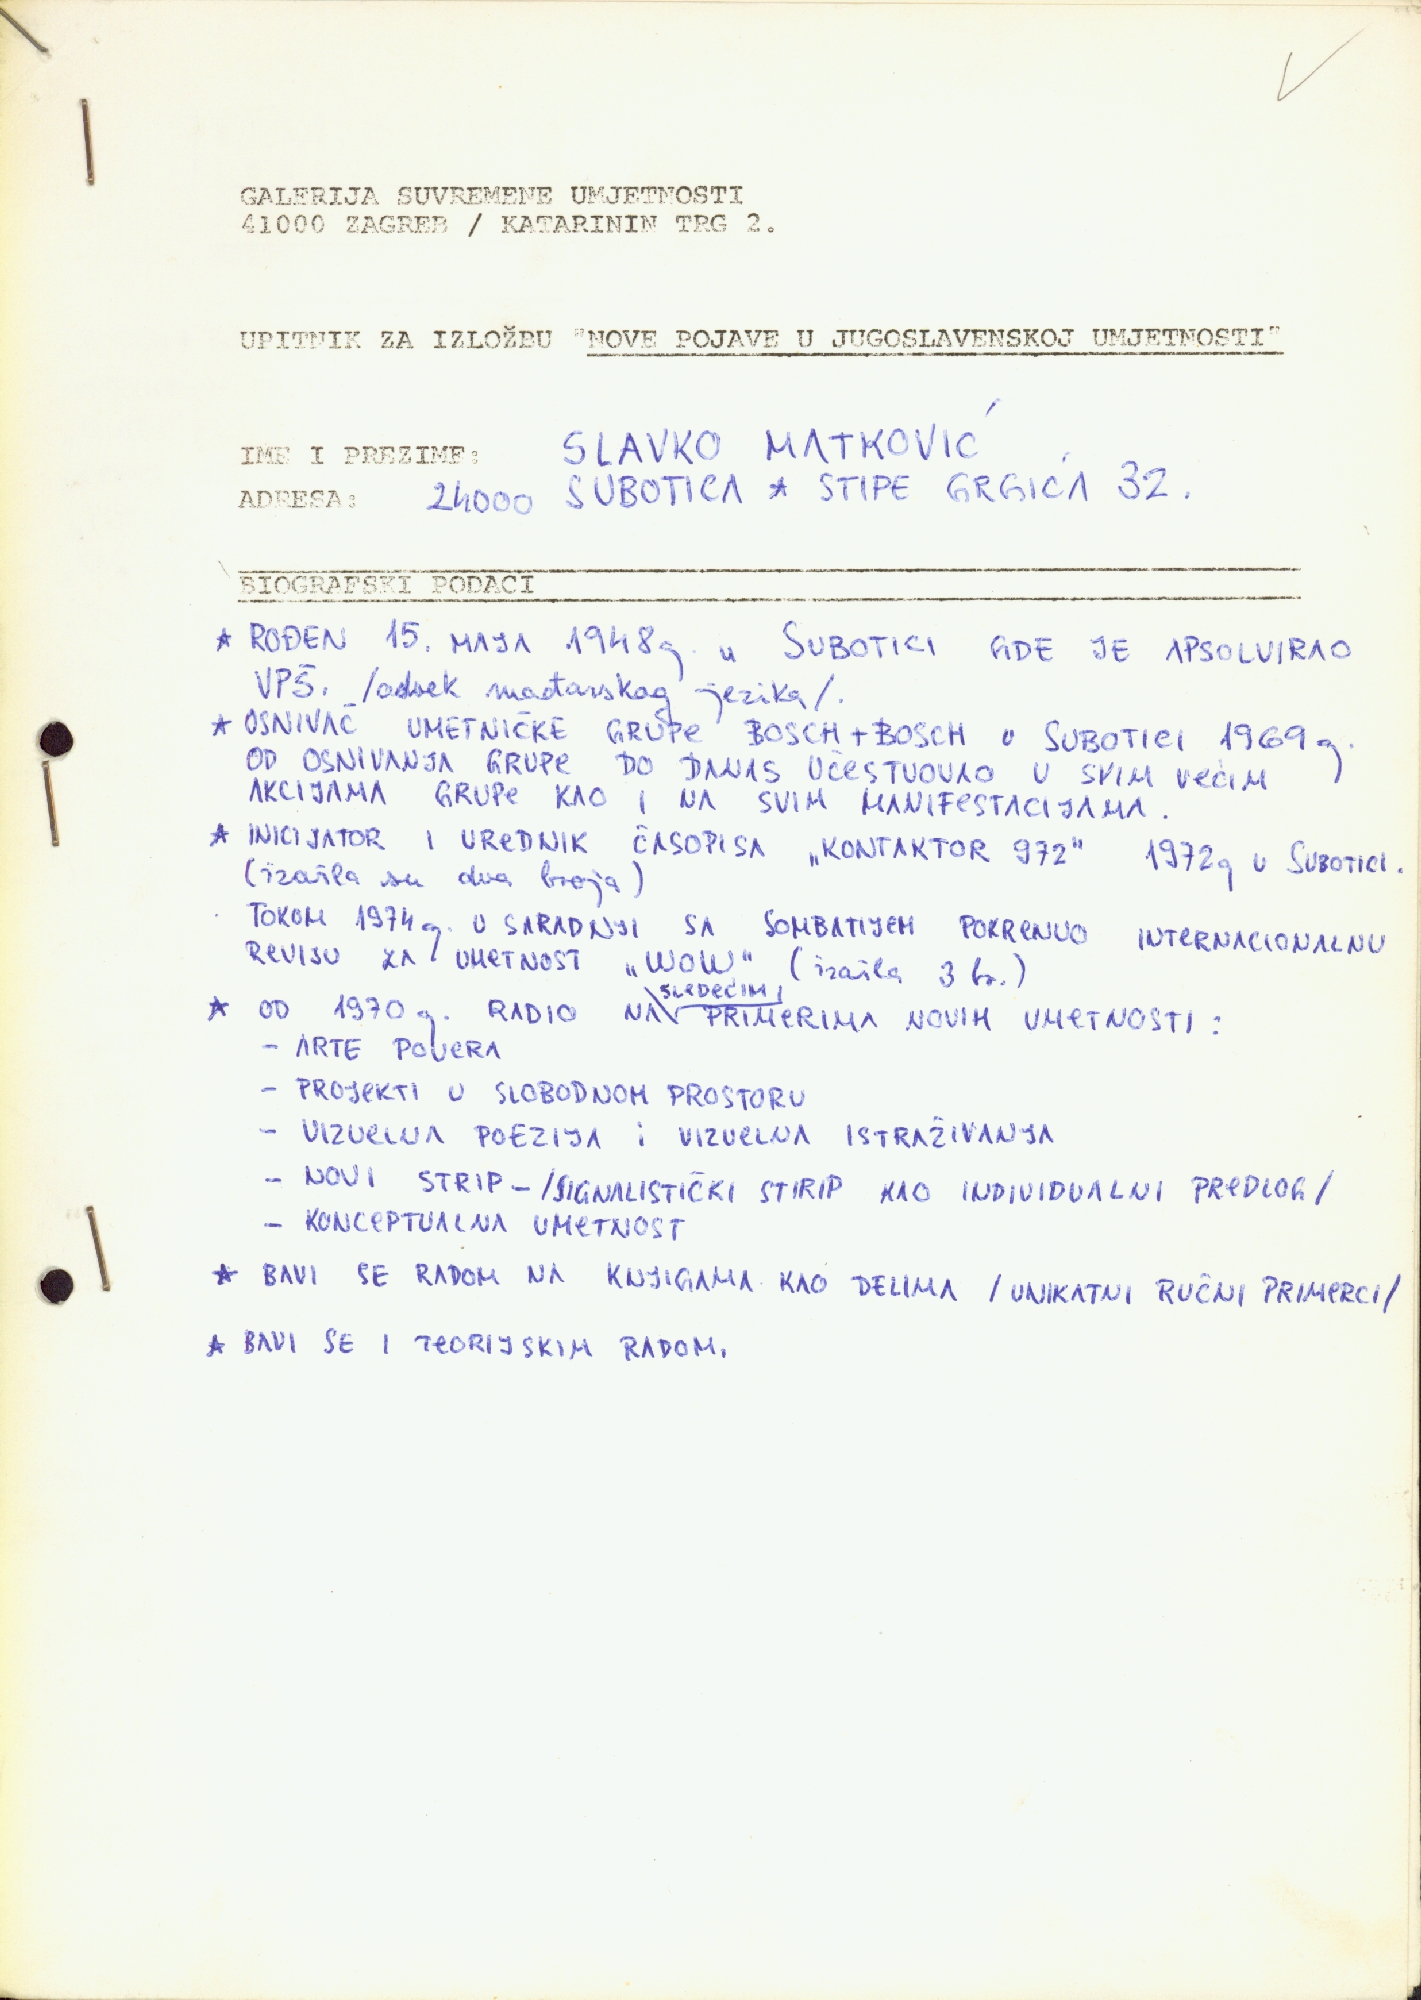 GALERIJA SUVREMENE UMJETNOSTI
41000 ZAGREB / KATARININ TRG 2.
UPITNIK ZA IZLOŽBU "NOVE POJAVE U JUGOSLAVENSKOJ UMJETNOSTI"
IME I PREZIME: SLAVKO MATKOVIĆ
ADRESA: 24000 SUBOTICA * STIPE GRGIĆA 32.
BIOGRAFSKI PODACI
* ROĐEN 15. MAJA 1948g. u SUBOTICI GDE JE APSOLVIRAO
VPŠ. /odsek mađarskog jezika/.
* OSNIVAČ UMETNIČKE GRUPE BOSCH+BOSCH U SUBOTICI 1969g.
OD OSNIVANJA GRUPE DO DANAS UČESTVOVAO U SVIM VEĆIM
AKCIJAMA GRUPE KAO I NA SVIM MANIFESTACIJAMA.
* INICIJATOR I UREDNIK ČASOPISA „KONTAKTOR 972" 1972g U SUBOTICI.
(izašla su dva broja)
TOKOM 1974g. U SARADNJI SA SOMBATIJEM POKRENUO INTERNACIONALNU
REVIJU ZA UMETNOST „WOW" (izašla 3 br.)
SLEDEĆIM
* OD 1970g. RADIO NA PRIMERIMA NOVIH UMETNOSTI:
- ARTE POVERA
- PROJEKTI U SLOBODNOM PROSTORU
- VIZUELNA POEZIJA i VIZUELNA ISTRAŽIVANJA
- NOVI STRIP - /SIGNALISTIČKI STIRIP KAO INDIVIDUALNI PREDLOG/
- KONCEPTUALNA UMETNOST
* BAVI SE RADOM NA KNJIGAMA KAO DELIMA /UNIKATNI RUČNI PRIMERCI/
* BAVI SE I TEORIJSKIM RADOM.